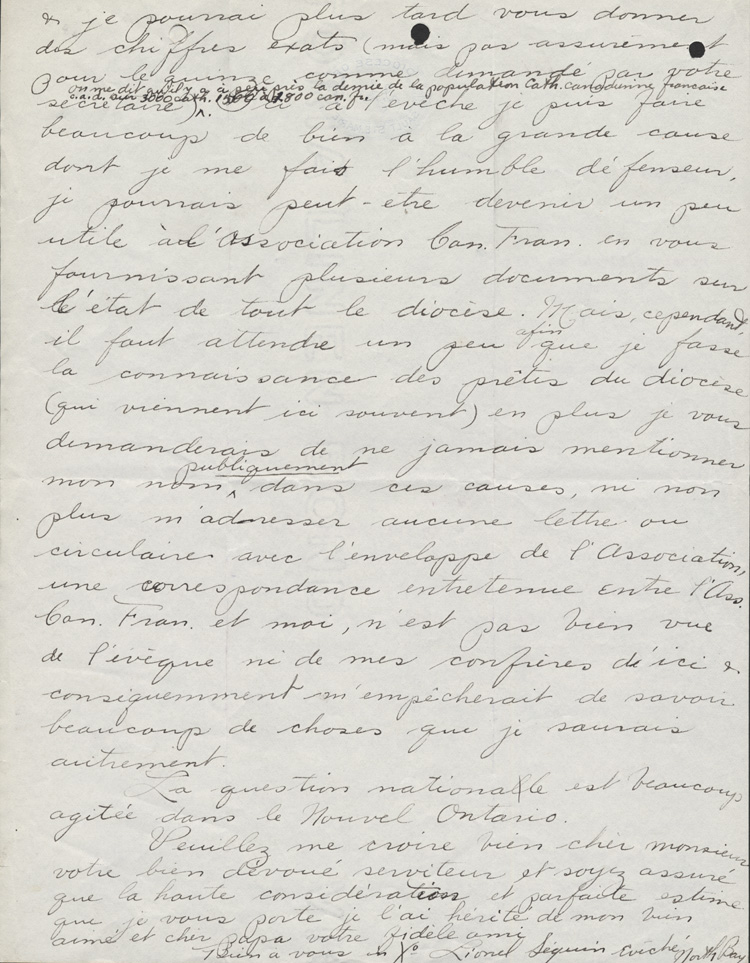 & je pourrai plus tard vous donner
des chiffres exats (mais pas assurément
pour le quinze comme demandé par votre
on me dit qu'il y a à peu près la demie de la population Cath. canadienne française
c.a.d. sur 3000 cath. 1500 à 1800 can. fr.
secrétaire). Ici à l'évêché je puis faire
beaucoup de bien à la grande cause
dont je me fais l'humble défenseur,
je pourrais peut-etre devenir un peu
utile à l'Association Can. Fran. en vous
fournissant plusieurs documents sur
l'état de tout le diocèse. Mais, cependant,
il faut attendre un peu afin que je fasse
la connaissance des prêtres du diocèse
(qui viennent ici souvent) en plus je vous
demanderais de ne jamais mentionner
publiquement
mon nom dans ces causes, ni non
plus m'adresser aucune lettre ou
circulaire avec l'enveloppe de l'Association,
une correspondance entretenue entre l'Ass.
Can. Fran. et moi, n'est pas bien vue
de l'évêque ni de mes confrères d'ici &
conséquemment m'empêcherait de savoir
beaucoup de choses que je saurais
autrement.
La question nationale est beaucoup
agitée dans le Nouvel Ontario.
Veuillez me croire bien cher monsieur
votre bien dévoué serviteur et soyez assuré
que la haute considération et parfaite estime
que je vous porte je l'ai hérité de mon bien
aimé et cher papa votre fidèle ami
Bien à vous en Xº Lionel Séguin Evêché, North Bay